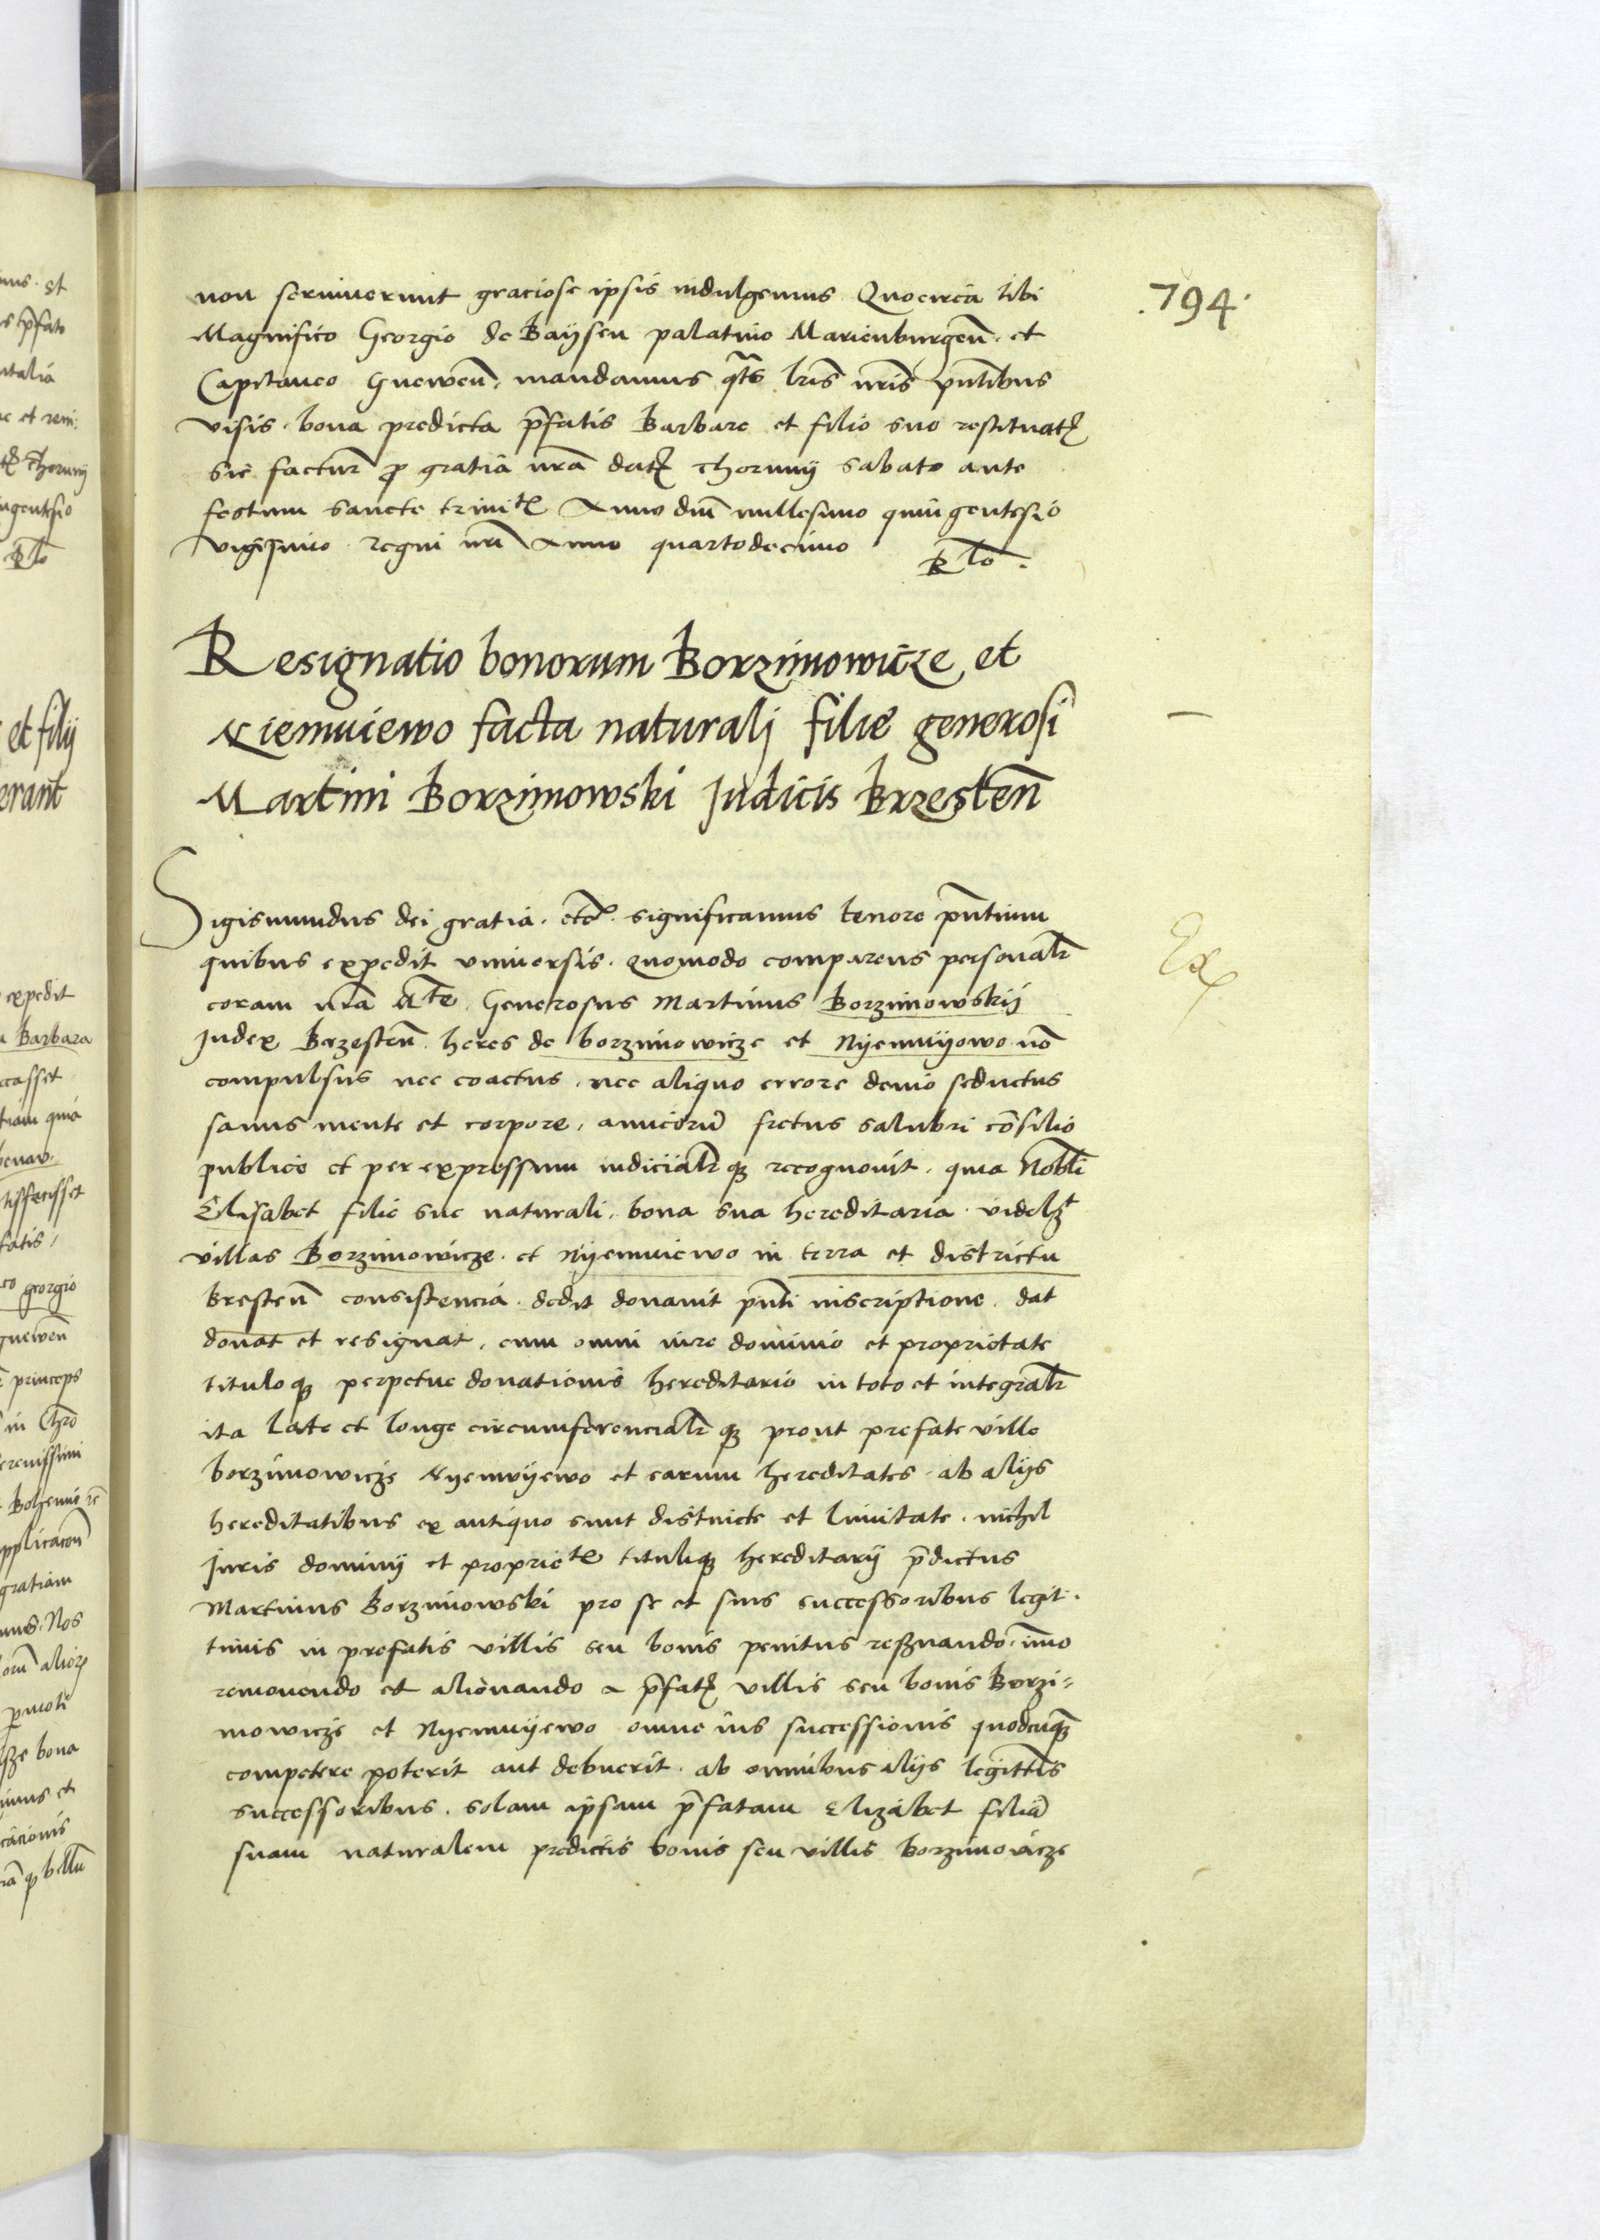 non serviverint graciose ipsis indulgemus Quocirca tibi
.794.
Magnifico Georgio de Baÿsen palatino Marienburgeñ. et
Capitaneo Gneweñ. mandamus qts lr̃is nr̃is pñtibus
visis. bona predicta p̃fatis Barbare et filio suo restituatꝭ
sic factur̃ ꝓ gratia nr̃a datꝭ Thorunij sabato ante
festum sancte trinitꝭ Anno dñi millesimo quingentesio
vigesimo regni nr̃i Anno quartodecimo
Rlo.
Resignatio bonorum Borzimowicze et
Niemuiewo facta naturalj filie generosi
Martini Borzimowski Judicis Brzesteñ
Sigismundus dei gratia. etcꝭ. significamus tenore pñtium
quibus expedit vniversis. quomodo comparens personalr̃
Ex
coram nr̃a Mte Generosus Martinus Borzimowskij
Judex Brzesteñ. heres de borzimowicze et Nyemuyowo nõ
compulsus nec coactus. nec aliquo errore devio seductus
sanus mente et corpore, amicorũ fretus salubri cõsilio
publice et per expressum iudicialr̃ qꝫ recognovit. quia Nobli
Elisabet filie sue naturali, bona sua hereditaria. videlꝫt
villas Borzimowicze. et Nÿemuiewo in terra et districtu
bresteñ consistencia. dedit donavit pñti inscriptione. dat
donat et resignat. cum omni iure dominio et proprietate
titulo qꝫ perpetue donationis hereditario in toto et integralr̃
ita late et longe circumferencialr̃ qꝫ prout prefate ville
borzimowicze Nyemuyewo et earum hereditates. ab alijs
hereditatibus ex antiquo sunt distincte et limitate. nichil
Juris dominij et proprietꝭ tituliqꝫ hereditarij p̃dictus
Martinus Borzimowski pro se et suis successoribus legit.
timis in prefatis villis seu bonis penitus reß̃vando. im̃o
removendo et alienando a p̃fatꝭ villis seu bonis Borzi=
mowicze et Nyemuyewo omne ius successionis quodcũqꝫ
competere poterit aut debuerit. ab omnibus alijs legittĩs
successoribus. solam ipsam p̃fatam Elizabet filiã
suam naturalem predictis bonis seu villis borzimovicze